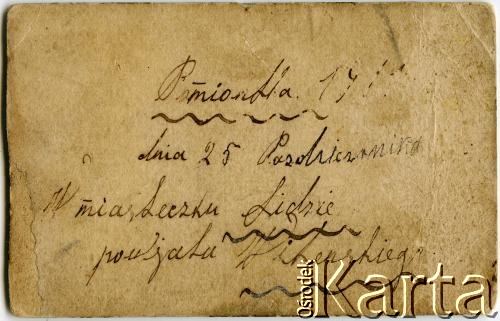 Pamiontka 19
dnia 25 Pazdziernika
W miasteczku Lidzie
powjatu
Ośrodek
Karta